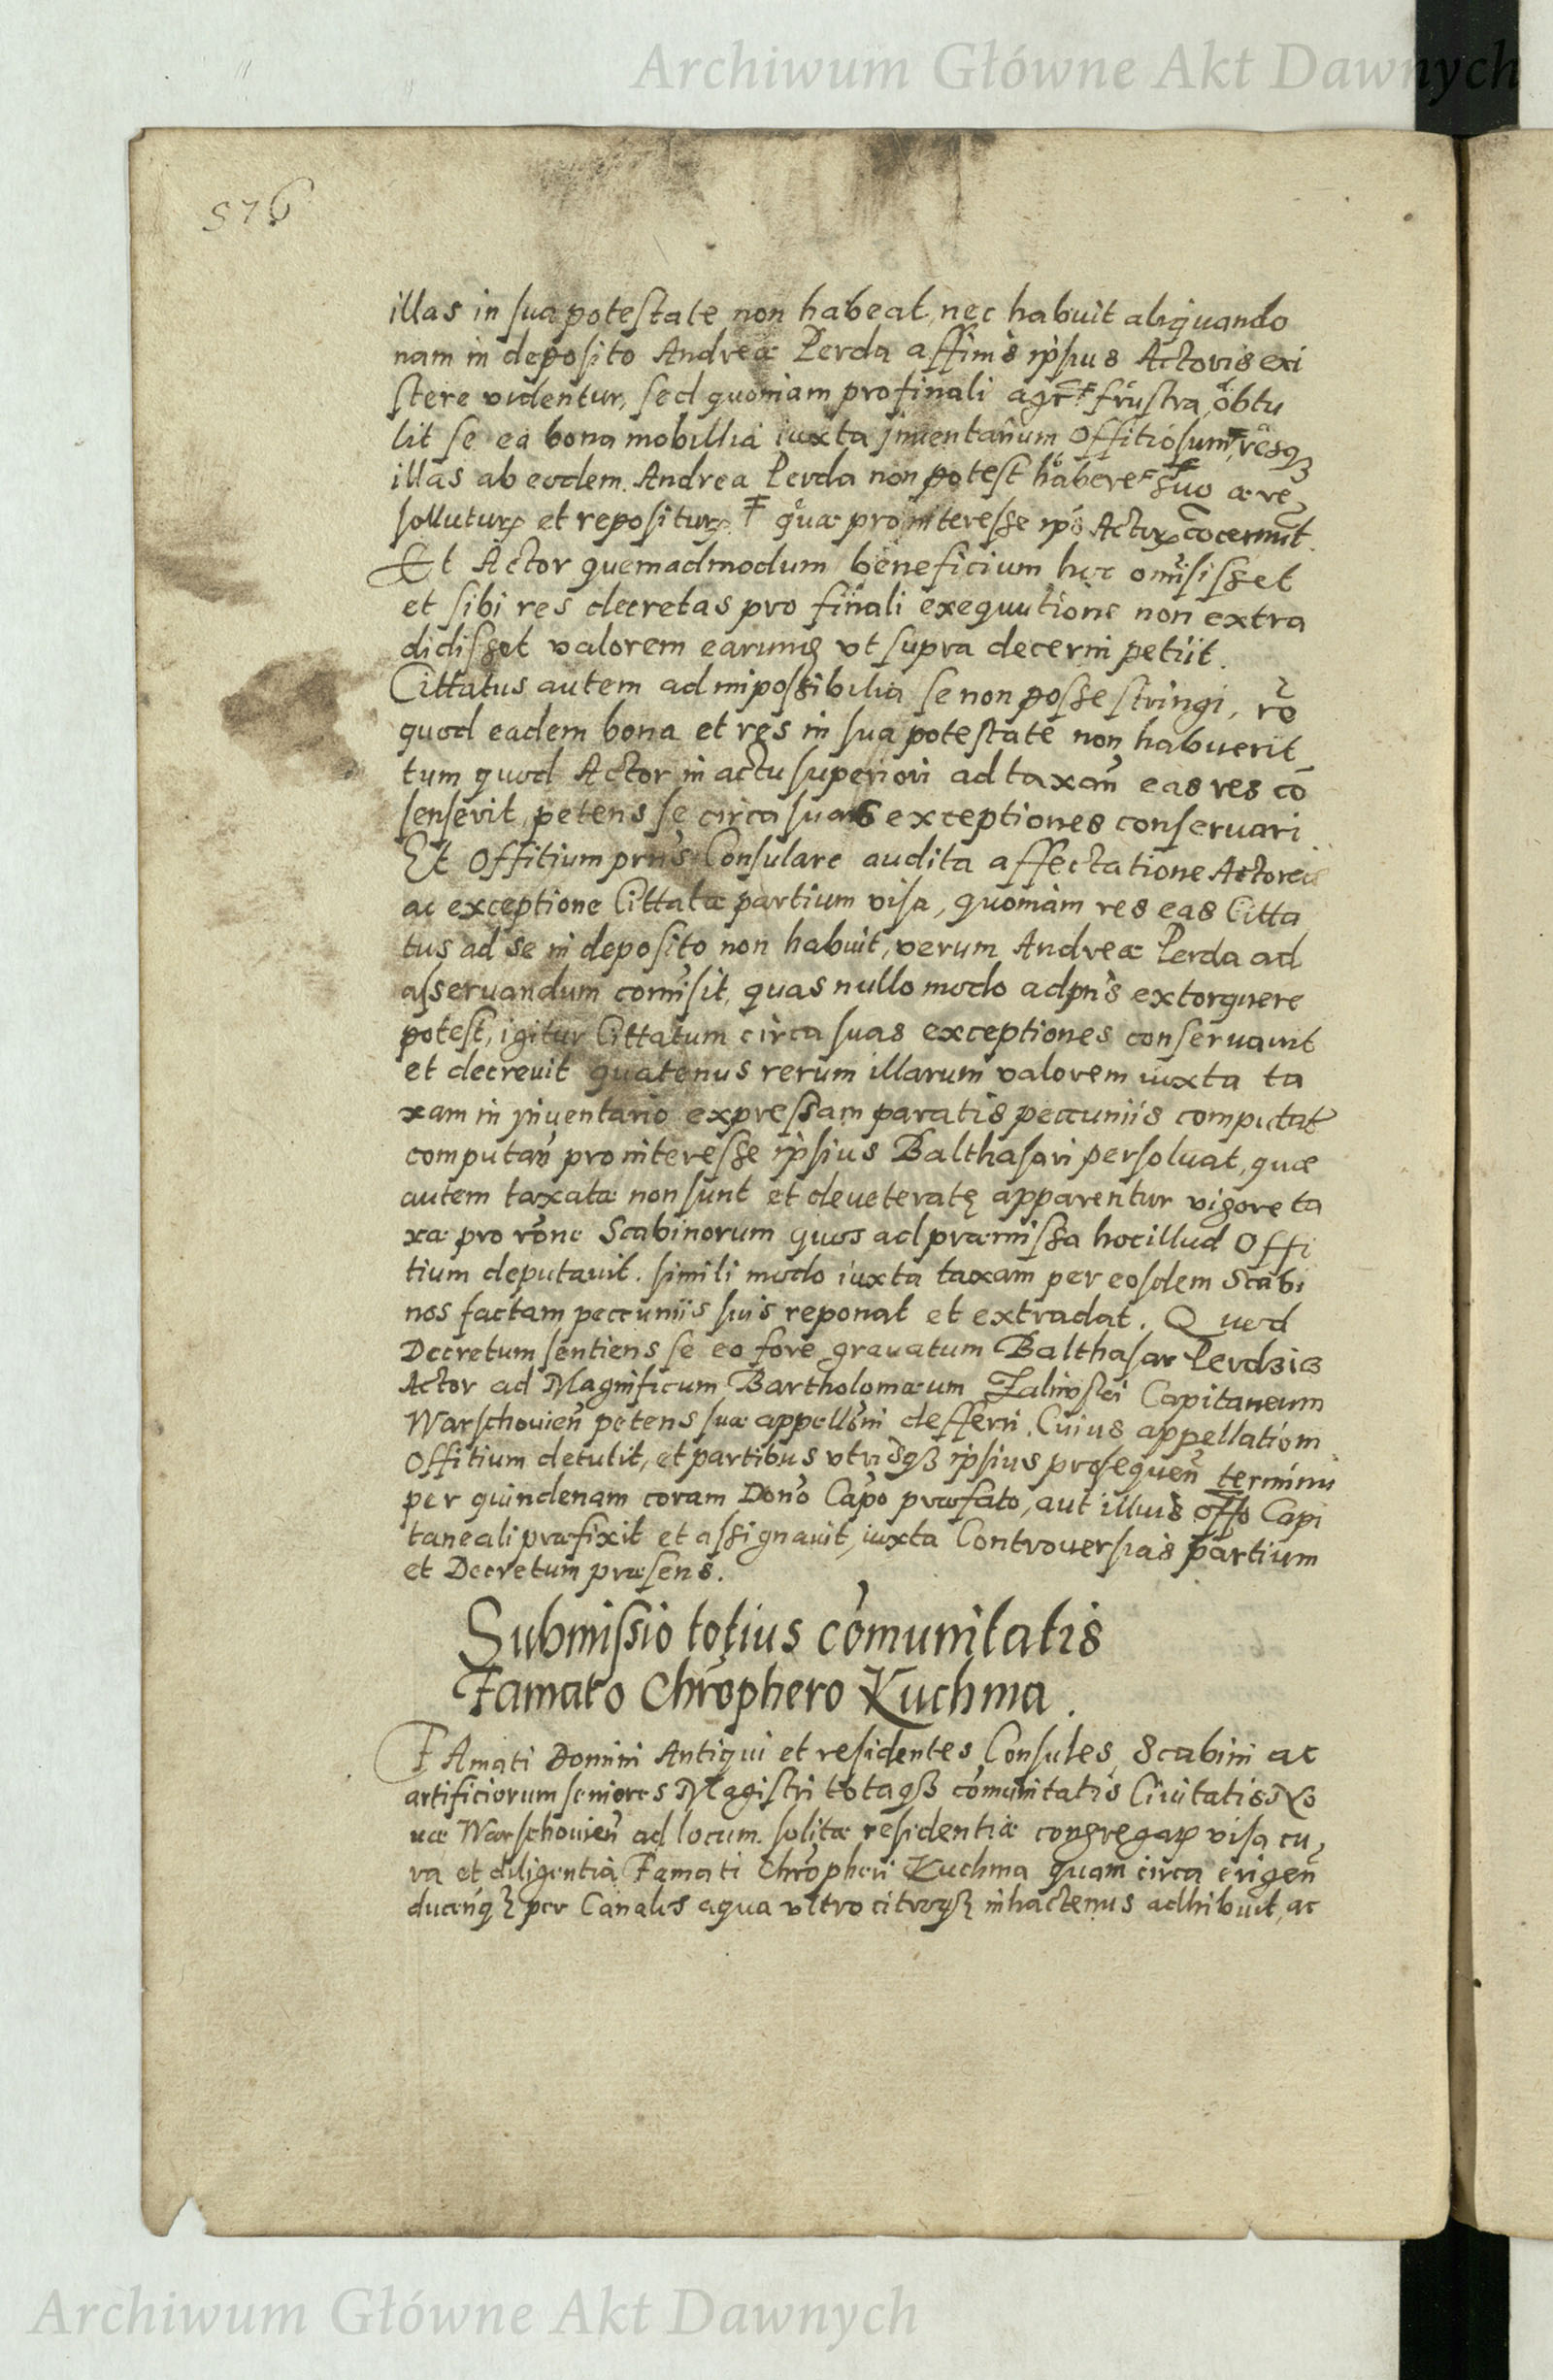 Archiwum Główne Akt Dawnych
576
illas in sua potestate non habeat, nec habuit aliquando
nam in deposito Andreæ Perda affinis ipsius Actoris exi
stere videntur, sed quoniam pro finali frustra, obtu
lit se ea bona mobillia iuxta inventarium Offitiosum, resq3
illas ab eodem Andrea Perda non potest habere suo ære
solluturū et repositurū quæ pro interesse ips Actor cōcernūt.
Et Actor quemadmodum beneficium hoc omisisset
et sibi res decretas pro finali exequutione non extra
didisset valorem earumq3 vt supra decerni petiit.
Cittatus autem ad impossibilia se non posse stringi, rō
quod eadem bona et res in sua potestate non habuerit
tum quod Actor in actu superiori ad taxān eas res cō
senserit, petens se circa suas exceptiones conseruari
Et Offitium prns Consulare audita affectatione Actorea
ac exceptione Cittatæ partium visa, quoniam res eas Citta
tus ad se in deposito non habuit, verum Andreæ Perda ad
asseruandum comīsit, quas nullo modo ad pns extorquere
potest, igitur Cittatum circa suas exceptiones conseruauit
et decreuit quatenus rerum illarum valorem iuxta ta
xam in inventario expressam paratis peccuniis computat
computan pro interesse ipsius Balthasari persoluat, quæ
autem taxatæ non sunt et deueteratę apparentur vigore ta
xæ pro rōne Scabinorum quos ad præmissa hoc illud Offi
tium deputauit. simili modo iuxta taxam per eosdem Scabi
nos factam peccuniis suis reponat et extradat. Quod
Decretum sentiens se eo fore grauatum Balthasar Perdzic
Actor ad Magnificum Bartholomæum Zalinski Capitaneum
Warschouien petens suæ appellōni defferri. Cuius appellatiōni
Offitium detulit, et partibus vtrisq3 ipsius prosequen termini
per quindenam coram Dono Capo præfato, aut illius offo Capi
taneali præfixit et assignauit, iuxta Controuersias partium
et Decretum præsens.
Submissio totius cōmunitatis
Famato Chrōphero Kuchma.
FAmati Domini Antiqui et residentes Consules, Scabini ac
artificiorum seniores Magistri totaq3 cōmunitatis Ciuitatis No
uæ Warschouien ad locum solitæ residentiæ congregati visa cu,
ra et diligentia Famati Chrōpheri Kuchma quam circa erigen
ducenq3 per Canales aqua vltro citroq3 inhactenus adhibuit, ac
Archiwum Główne Akt Dawnych